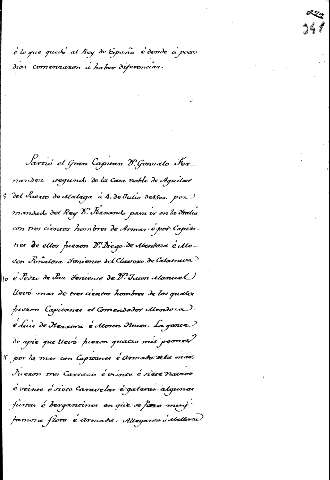 341
é lo que quedó al Rey de España é donde á pocos
dias comenzaron á haber diferencias.
Partió el Gran Capitan Dn. Gonzalo Fer-
nandez segundo de la Casa noble de Aguilar
del Puerto de Malaga á 4 de Julio de por
mandado del Rey Dn. Fernando para ir en la Italia
con tres cientos hombres de Armas é por Capita-
nes de ellos fueron Dn. Diego de Mendoza é Mo-
sen Peñalosa teniente del Clavero de Calatrava
é Pedro de Paz teniente de Dn. Juan Manuel
llevó mas de tres cientos hombres de los quales
fueron Capitanes el Comendador Mendoza
é Luis de Herrera é Mosen Hoces. La gente
de apie que llevó fueron quatro mil peones
por la mar con Capitanes é Armada de la mar
fueron tres Carracas é veinte é siete Navios
é veinte é cinco Caravelas é galeras algunas
fustas é bergantines en que se fizo muy
fermosa flota é Armada. Allegaron á Mallorca